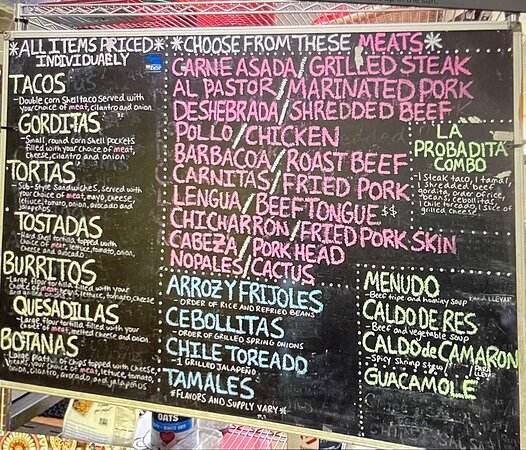 *ALL ITEMS PRICED*
INDIVIDUALLY
TACOS
-Double corn shell taco served with
your choice of meat, cilantro and onion.
GORDITAS
-Small, round corn shell pockets
filled with your choice of meat,
cheese, cilantro and onion
TORTAS
Sub-Style Sandwiches, served with
your choice of meat, mayo, cheese,
lettuce, tomato, onion, avocado and
jalapeños
TOSTADAS
-Hard Shell tortilla topped with
choice of meat, lettuce, tomato, onion,
cheese and avocado
BURRITOS
Large flour tortilla filled with your
choice of meat, beans, lettuce, tomato, cheese
QUESADILLAS
Large flour tortilla filled with your
choice of meat, melted cheese and onion.
BOTANAS
-Large platter of chips topped with cheese,
beans, choice of meat, lettuce, tomato,
onion, cilantro, avocado and jalapeños
*CHOOSE FROM THESE MEATS*
CARNE ASADA/GRILLED STEAK
AL PASTOR/MARINATED PORK
DESHEBRADA/SHREDDED BEEF
POLLO/CHICKEN
BARBACOA/ROAST BEEF
CARNITAS/FRIED PORK
LENGUA/BEEF TONGUE $$
CHICHARRON/FRIED PORK SKIN
CABEZA/PORK HEAD
NOPALES/CACTUS
LA
PROBADITA
COMBO
1 Steak taco, 1 tamal,
1 shredded beef
gordita, order of rice,
beans, cebollitas,
1 Chile toreado, 1 slice of
grilled cheese
ARROZ Y FRIJOLES
-ORDER OF RICE AND REFRIED BEANS
CEBOLLITAS
-ORDER OF GRILLED SPRING ONIONS
CHILE TOREADO
-1 GRILLED JALAPEÑO
TAMALES
*FLAVORS AND SUPPLY VARY*
MENUDO
-Beef tripe and hominy soup PARA LLEVAR
CALDO DE RES
-Beef and vegetable soup
CALDO de CAMARON
-Spicy shrimp stew PARA
LLEVAR
GUACAMOLE
OATS